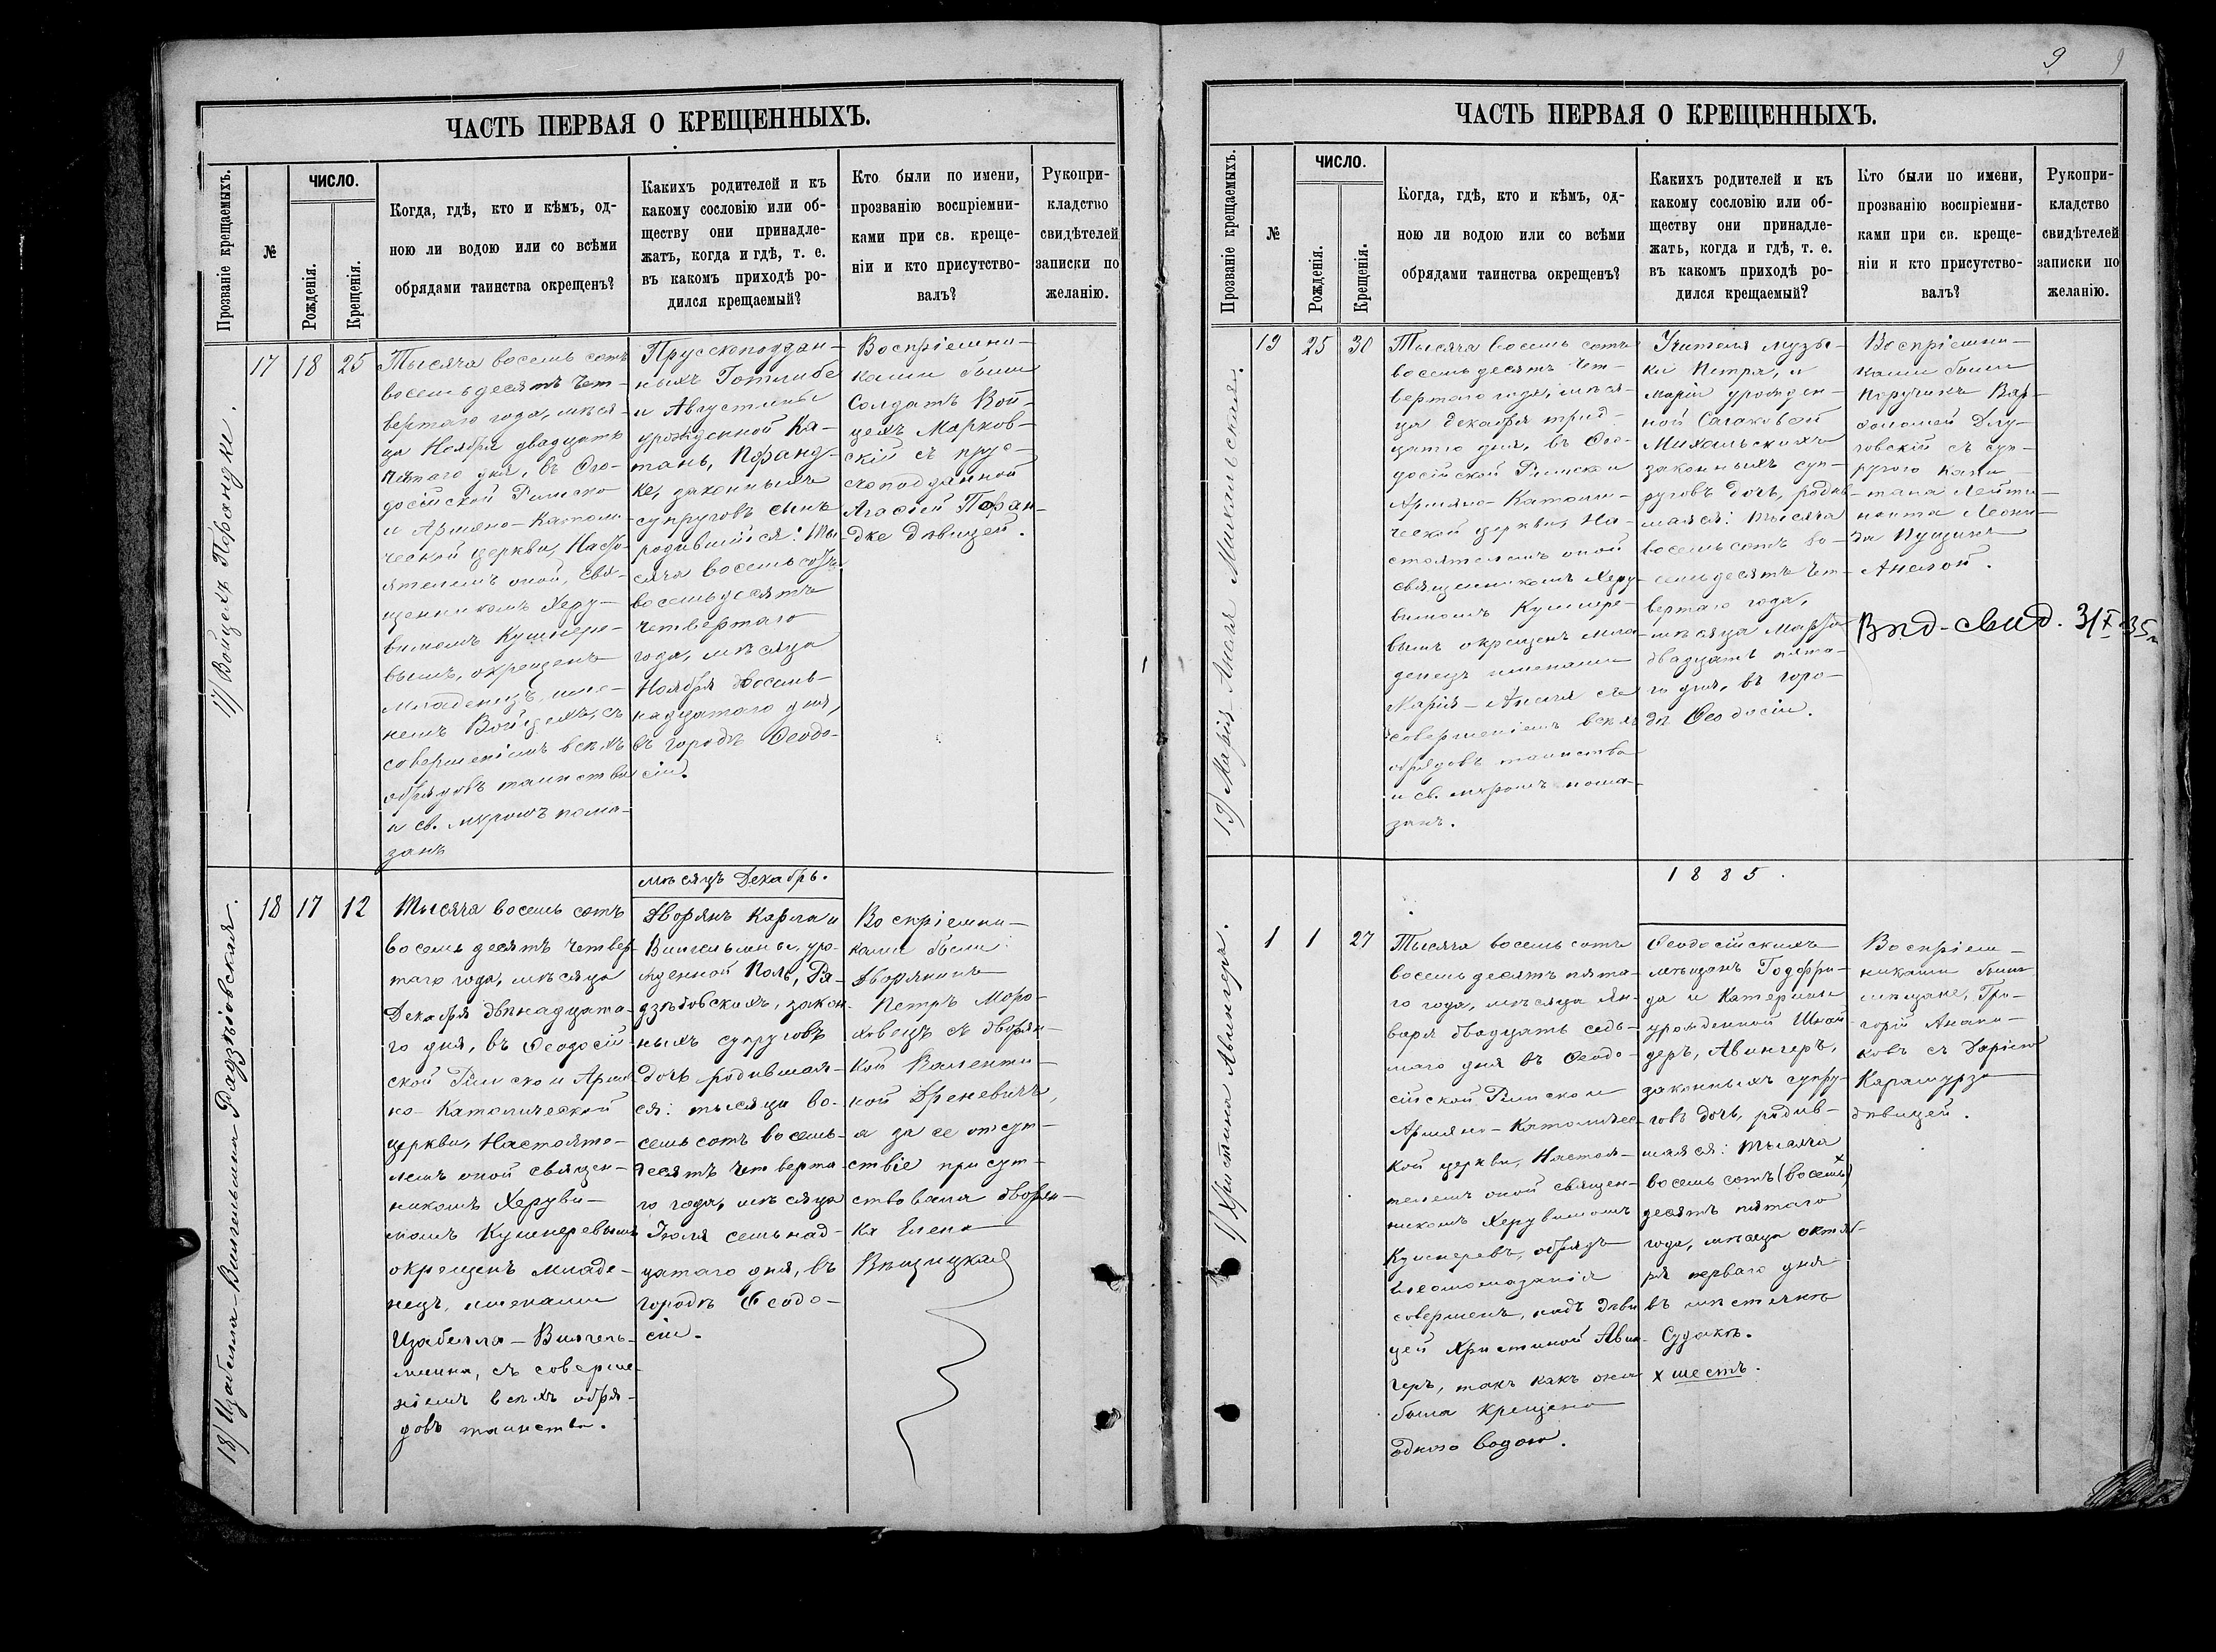 ЧАСТЬ ПЕРВАЯ О КРЕЩЕННЫХЪ.
Прозваніе крещаемыхъ.
№
ЧИСЛО.
Рожденія.
Крещенія.
Когда, гдѣ, кто и кѣмъ, од-
ною ли водою или со всѣми
обрядами таинства окрещенъ?
Какихъ родителей и къ
какому сословію или об-
ществу они принадле-
жатъ, когда и гдѣ, т. е.
въ какомъ приходѣ ро-
дился крещаемый?
Кто были по имени,
прозванію воспріемни-
ками при св. креще-
ніи и кто присутство-
валъ?
Рукопри-
кладство
свидѣтелей
записки по
желанію.
17/ Войцехъ Пофандки.
17
18
25
Тысяча восемь сотъ
восемьдесятъ чет-
вертаго года, мѣся-
ца Ноября двадцать
пятаго дня, въ Ѳео-
досійской Римско
и Армяно-Католи-
ческой церкви, Насто-
ятелемъ оной, свя-
щенникомъ Херу-
вимомъ Кушнере-
вымъ, окрещенъ
младенецъ име-
немъ Войцехъ, съ
совершеніемъ всѣхъ
обрядовъ таинства
и св. мѵромъ пома-
занъ
Прусскоподдан-
ныхъ Готлибе
и Августины
урожденной Ка-
тань, Пофанд-
ке, законныхъ
супруговъ сынъ
родившійся: ты-
сяча восемьсотъ
восемьдесятъ
четвертаго
года, мѣсяца
Ноября восемь-
надцатаго дня,
въ городѣ Ѳеодо-
сіи.
Воспріемни-
ками были
Солдатъ Вой-
цехъ Марков-
скій съ прус-
скоподданной
Агафіей Пофан-
дке дѣвицей.
мѣсяцъ Декабрь.
18/ Изабелла-Вильгельмина Радзѣіовская.
18
17
12
Тысяча восемь сотъ
восемь десятъ четвер-
таго года, мѣсяца
Декабря двѣнадцата-
го дня, въ Ѳеодосій-
ской Римско и Армя-
но-Католической
церкви, Настояте-
лемъ оной священ-
никомъ Херуви-
момъ Кушнеревымъ
окрещенъ младе-
нецъ, именами
Изабелла-Вильгель-
мина, съ соверше-
ніемъ всѣхъ обря-
довъ таинства.
Дворянъ Карла и
Вильгельмины, уро-
жденной Поль, Ра-
дзѣіовскихъ, закон-
ныхъ супруговъ
дочь родившая-
ся: тысяща во-
семь сотъ восемь-
десятъ четверта-
го года, мѣсяца
Іюля семьнад-
цатаго дня, въ
городѣ Ѳеодо-
сіи.
Воспріемни-
ками были
Дворянинъ
Петръ Моро-
ховецъ съ дворян-
кой Валенти-
ной Дреневичъ,
а за ее отсут-
ствіе присут-
ствовала дворян-
ка Елена
Вѣщицкая
9
9
ЧАСТЬ ПЕРВАЯ О КРЕЩЕННЫХЪ.
Прозваніе крещаемыхъ.
№
ЧИСЛО.
Рожденія.
Крещенія.
Когда, гдѣ, кто и кѣмъ, од-
ною ли водою или со всѣми
обрядами таинства окрещенъ?
Какихъ родителей и къ
какому сословію или об-
ществу они принадле-
жатъ, когда и гдѣ, т. е.
въ какомъ приходѣ ро-
дился крещаемый?
Кто были по имени,
прозванію воспріемни-
ками при св. креще-
ніи и кто присутство-
валъ?
Рукопри-
кладство
свидѣтелей
записки по
желанію.
19/ Марія Анеля Михальская.
19
25
30
Тысяча восемь сотъ
восемь десятъ чет-
вертаго года, мѣся-
ца Декабря трид-
цатаго дня, въ Ѳео-
досійской Римско и
Армяно-Католи-
ческой церкви, На-
стоятелемъ оной
священникомъ Херу-
вимомъ Кушнере-
вымъ окрещенъ мла-
денецъ именами
Марія-Анеля съ
совершеніемъ всѣхъ
обрядовъ таинства
и св. мѵромъ пома-
занъ.
Учителя музы-
ки Петра, и
Маріи урожден-
ной Сагаковой
Михальскихъ
законныхъ суп-
руговъ дочь, родив-
шаяся: тысяча
восемьсотъ во-
семьдесятъ чет-
вертаго года,
мѣсяца Марта
двадцать пята-
го дня, въ горо-
дѣ Ѳеодосіи.
Воспріемни-
ками были
Поручикъ Вар-
ѳоломей Длу-
говскій съ суп-
ругою капи-
тана Лейте-
нанта
Пущинъ
Анелой.
Выд-свид. 31/X-35 г.
1885.
1/ Христина Авингеръ.
1
1
27
Тысяча восемь сотъ
восемь десятъ пята-
го года, мѣсяца Ян-
варя двадцать седь-
маго дня въ Ѳеодо-
сійской Римско и
Армяно-Католичес-
кой церкви, Настоя-
телемъ оной священ-
никомъ Херувимомъ
Кушнеревъ, обрядъ
Елеопомазанія
совершенъ, надъ дѣви-
цей Христиной Авин-
геръ, такъ какъ она
была крещена
одною водою.
Ѳеодосійскихъ
мѣщанъ Годфри-
да и Катерины
урожденной Шней-
деръ, Авингеръ,
законныхъ супру-
говъ дочь, родив-
шаяся: Тысяча
восемь сотъ (восемь) х
десятъ пятаго
года, мѣсяца октяб-
ря перваго дня
въ мѣстечкѣ
Судакѣ.
х шесть.
Воспріем-
никами были
мѣщане, Гри-
горій Анани-
ковъ съ Даріею
Карамурза
дѣвицей.